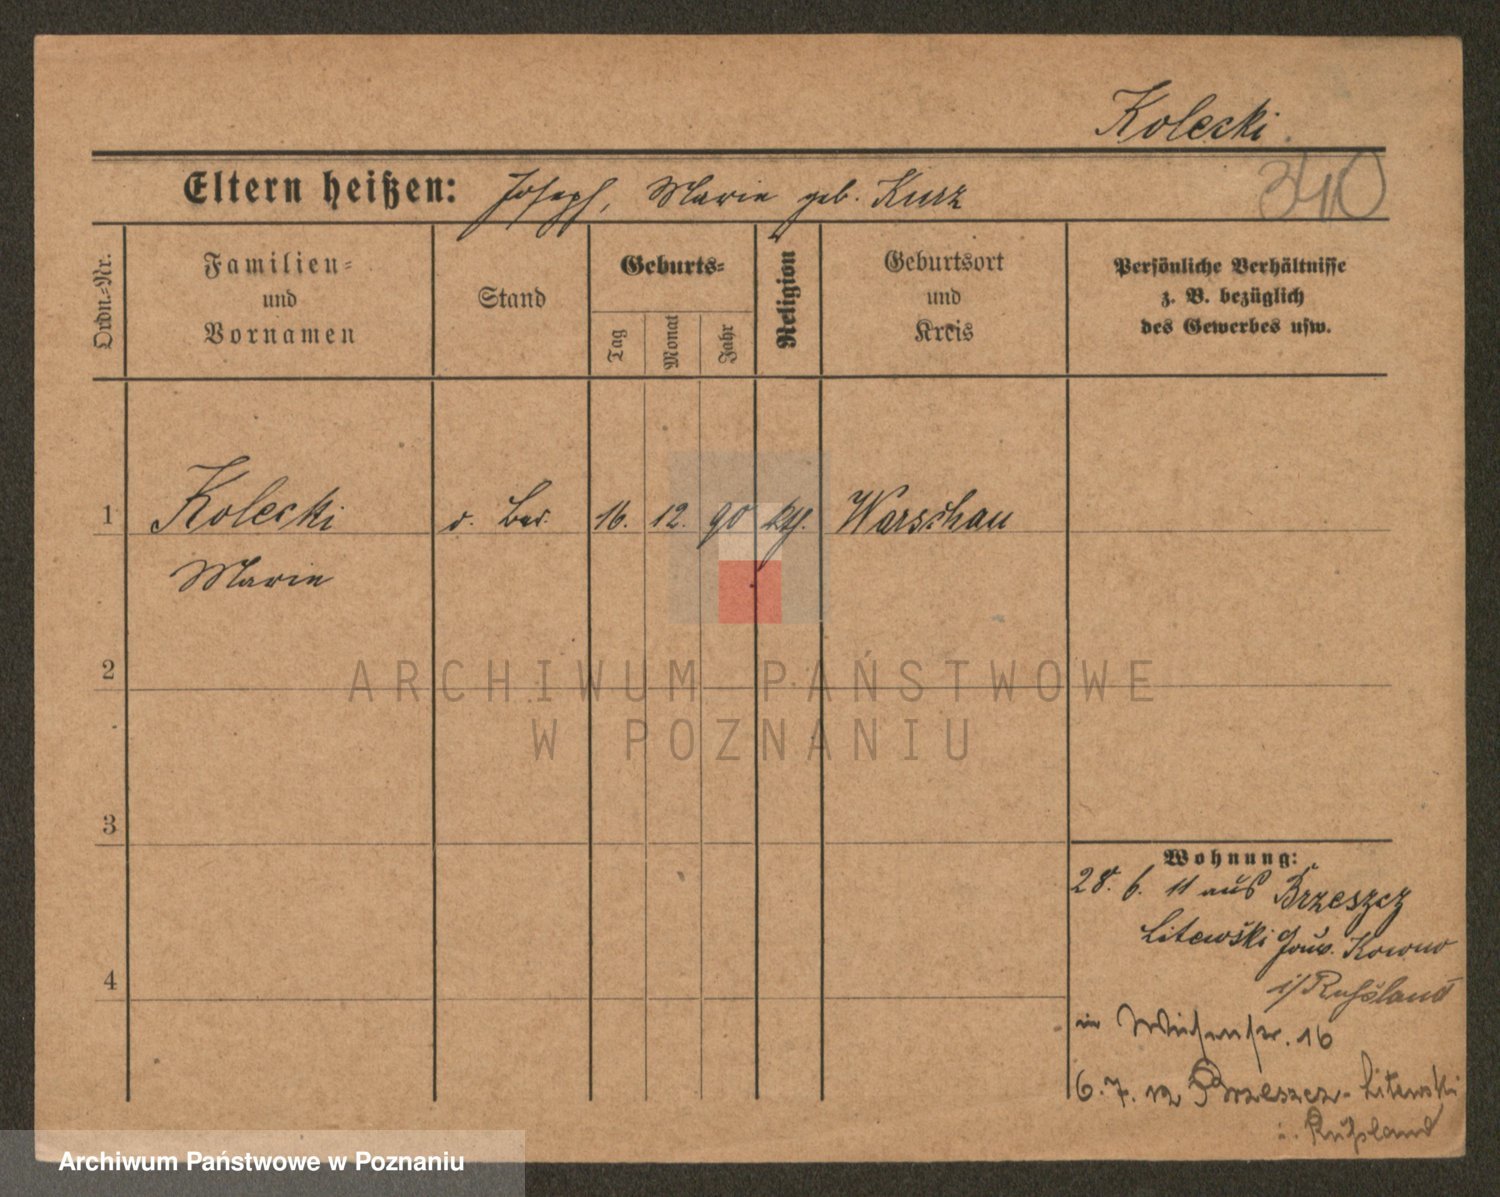 Kolecki
340
Eltern heißen: Joseph, Marie geb. Kurz
Ordn.-Nr.
Familien-
und
Vornamen
Stand
Geburts-
Tag
Monat
Jahr
Religion
Geburtsort
und
Kreis
Persönliche Verhältnisse
z. B. bezüglich
des Gewerbes usw.
1 Kolecki 16. 12. 90 Warschau
Marie
2
ARCHIWUM PAŃSTWOWE
W POZNANIU
3
Wohnung:
28. 6. 11 aus Brzeszcz
Litewski Gouv. Kowno
i/Rußland
4
in Wiesenstr. 16
6. 7. 12 Brzeszcz-Litewski
i. Rußland
Archiwum Państwowe w Poznaniu